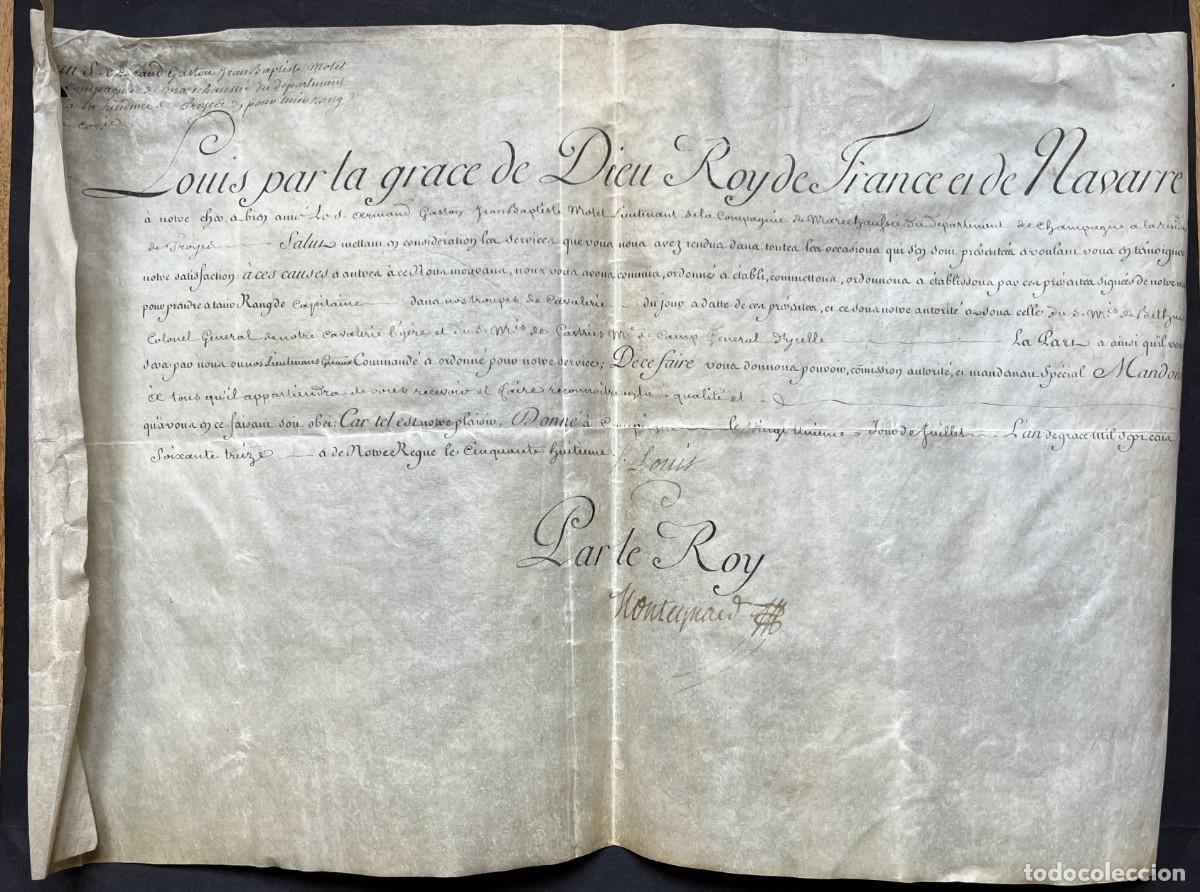 S. Armand Gaston Jean Baptiste Motel
Compagnie de marechaussée du departement
a la residence de Troyes, pour tenir rang
Louis par la grace de Dieu Roy de France et de Navarre
à notre cher & bien amé Le S. Armand Gaston Jean Baptiste Motel Lieutenant de la Compagnie de Marechaussée du departement de Champagne a la
de Troyes Salut mettant en considération les services que vous nous avez rendus dans toutes les occasions qui s'en sont présentées & voulant vous en témoigner
notre satisfaction; à ces causes & autres à ce Nous mouvans, nous vous avons commis, ordonné & établi, commettons, ordonnons & établissons par ces présentes signées de notre
pour prendre & tenir Rang de Capitaine dans nos troupes de Cavalerie du jour & datte de ces présentes, et ce sous notre autorité & sous celle du S. Mis de
Colonel General de notre cavalerie légere et du S. Mis de Castries Me de Camp General d'ycelle La Part & ainsi qu'il
sera par nous ou nos Lieutenans Gñaux Commandé & ordonné pour notre service; De ce faire vous donnons pouvoir, comission autorité, et mandement Spécial Mandons
à tous qu'il appartiendra de vous recevoir et faire reconnoitre en la qualité et
qu'à vous en ce faisant soit obei: Car tel est notre plaisir. Donné à Compiegne le vingt unieme Jour de Juillet L'an de grace mil sept cent
Soixante treize & de Notre Regne le Cinquante huitieme.
Louis
Par le Roy
Monteynard
todocoleccion